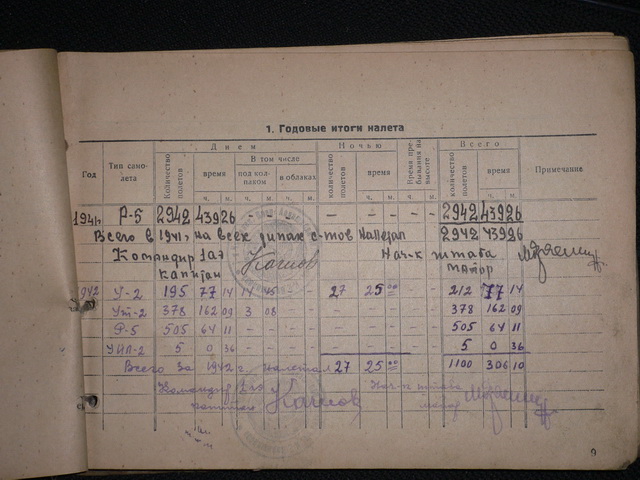 1. Годовые итоги налета
Год Тип само-лета Днем Ночью Время пре-бывания на высоте Всего Примечание
Количество полетов время В том числе количество полетов время количество полетов время
под кол-паком в облаках
ч. м. ч. м. ч. м. ч. м. ч. м. ч. м.
1941г. Р-5 2942 439 26 - - - - - - - - - 2942 439 26
Всего в 1941г. на всех типах с-тов Налетал 2942 439 26
Командир 1аэ Нач-к штаба
капитан Кашов майор
1942 У-2 195 77 14 14 45 - - 27 25 00 - - 212 77 14
Ут-2 378 162 09 3 08 - - - - - - - 378 162 09
Р-5 505 64 11 - - - - - - - - - 505 64 11
УИЛ-2 5 0 36 - - - - - - - - - 5 0 36
Всего за 1942 г. налетал 27 25 00 1100 306 10
Командир Нач-к штаба
капитан Кашов майор
9